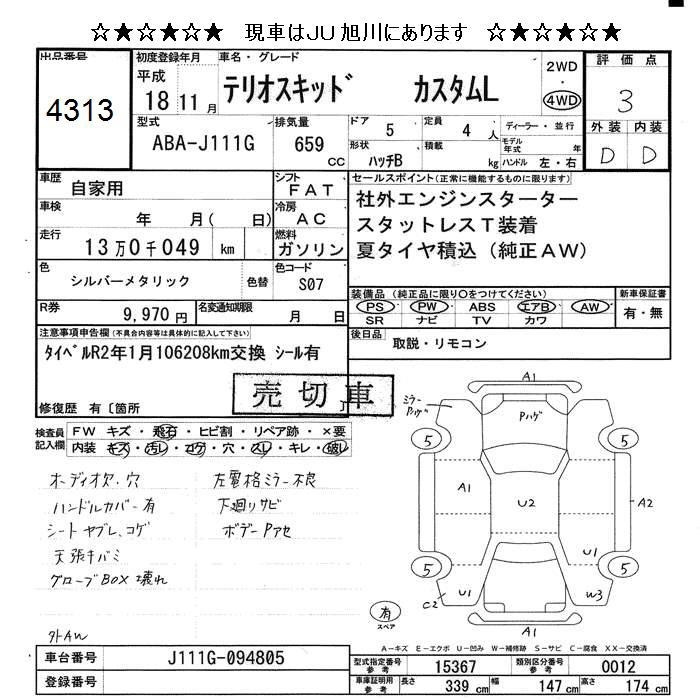 ☆★☆★☆★☆ 現車はJU旭川にあります ☆★☆★☆★☆
出品番号
4313
初度登録年月
平成
18 11 月
車名・グレード
テリオスキッド カスタムL
2WD
・
4WD
評価点
3
外装 内装
D D
型式
ABA-J111G
排気量
659
CC
ドア
5
定員
4 人
ディーラー・並行
形状
ハッチB
積載
kg
モデル年式 年
ハンドル 左・右
車歴
自家用
シフト
FAT
セールスポイント(正常に機能するものに限ります)
社外エンジンスターター
スタットレスT装着
夏タイヤ積込(純正AW)
車検
年 月( 日)
冷房
AC
走行
13万0千049 km
燃料
ガソリン
色
シルバーメタリック
色替
色コード
S07
装備品(純正品に限り○をつけてください)
PS PW ABS エアB AW
SR ナビ TV カワ
新車保証書
有・無
R券
9,970 円
名変通知期限
月 日
後日品
取説・リモコン
注意事項申告欄(不具合内容等は具体的に記入して下さい)
タイベルR2年1月106208km交換 シール有
売切車
修復歴 有〔箇所 〕
検査員記入欄
FW キズ・飛石・ヒビ割・リペア跡・×要
内装 キズ・汚レ・コゲ・穴・スレ・キレ・破レ
オーディオ欠・穴
ハンドルカバー有
シートヤブレ、コゲ
天張キバミ
グローブBOX壊れ
外AW
左電格ミラー不良
下廻リサビ
ボデーPアセ
A1
ミラーPハゲ
Pハゲ
5
5
A1
U2
A2
U1
5
5
C2
U1
W3
有
スペア
A1
A-キズ E-エクボ U-凹み W-補修跡 S-サビ C-腐食 XX-交換済
車台番号
J111G-094805
登録番号
型式指定番号
参考
15367
類別区分番号
参考
0012
車庫証明用
参考
長さ
339 cm
幅
147 cm
高さ
174 cm